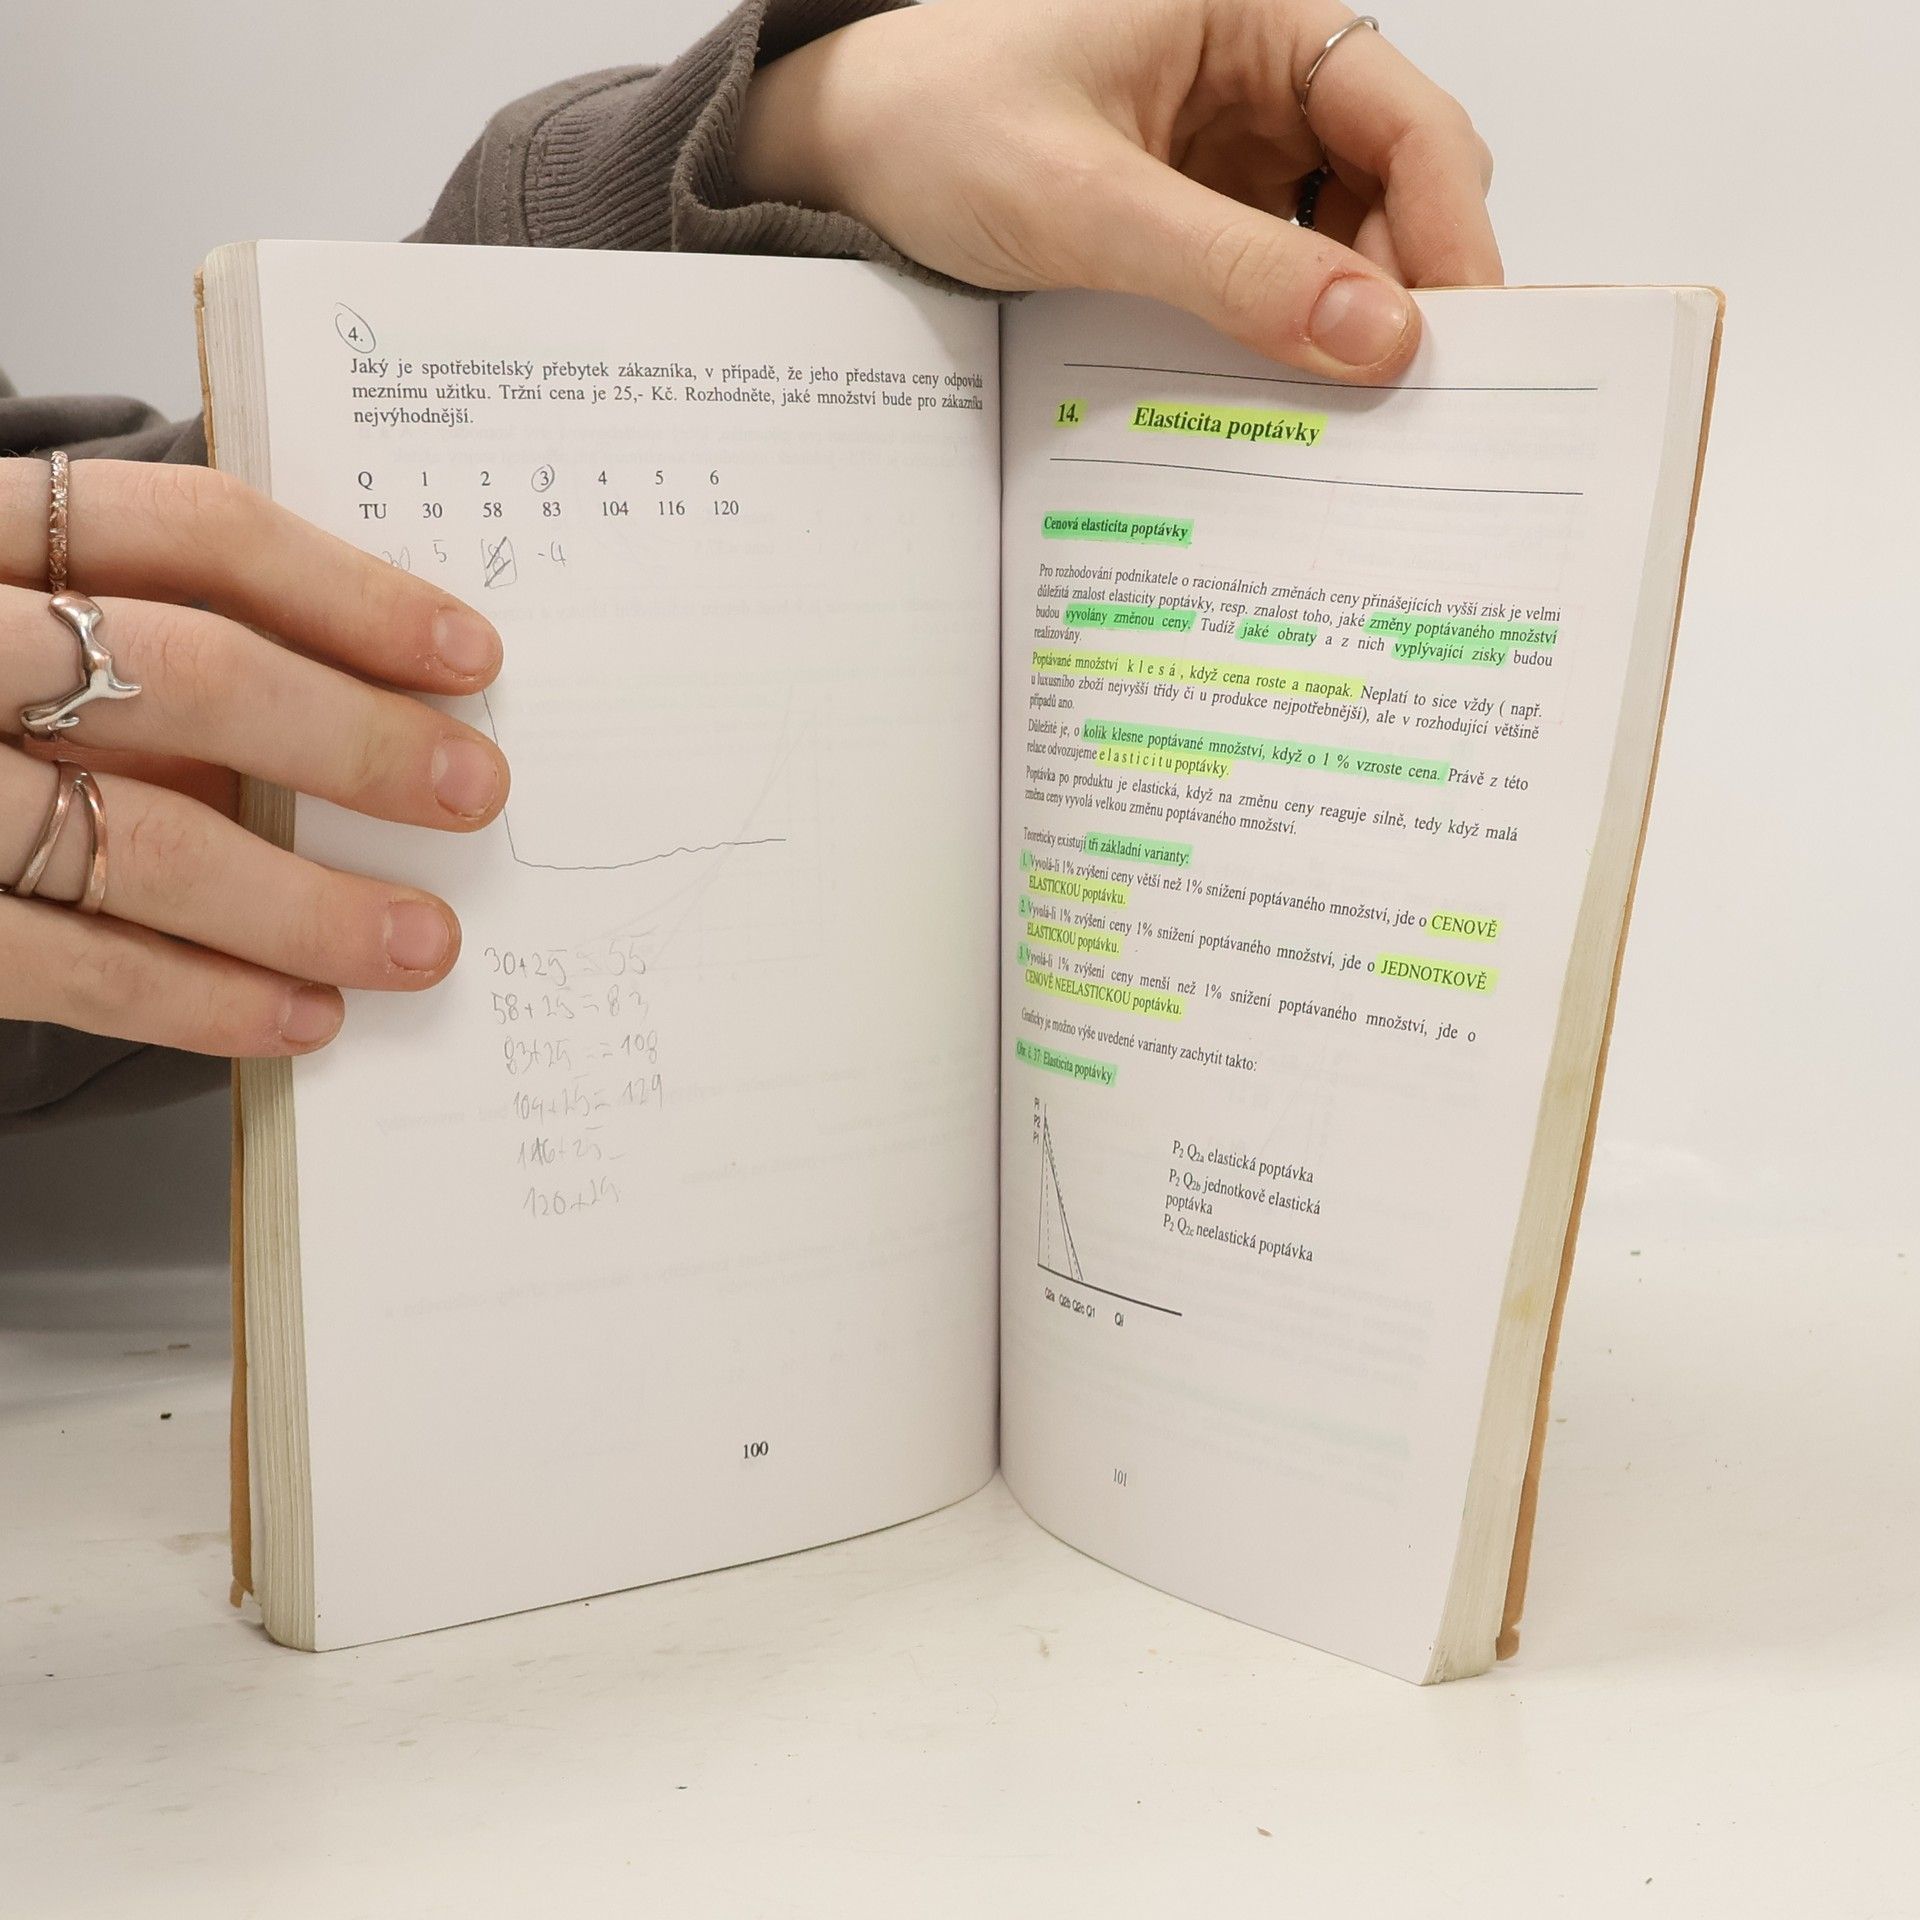 4.
Jaký je spotřebitelský přebytek zákazníka, v případě, že jeho představa ceny odpovídá
meznímu užitku. Tržní cena je 25,- Kč. Rozhodněte, jaké množství bude pro zákazníka
nejvýhodnější.
Q 1 2 3 4 5 6
TU 30 58 83 104 116 120
5 8 -4
30+25 = 55
58+25 = 83
83+25 = = 108
104+25 = 129
116+25 =
120+25
100
14. Elasticita poptávky
Cenová elasticita poptávky
Pro rozhodování podnikatele o racionálních změnách ceny přinášejících vyšší zisk je velmi
důležitá znalost elasticity poptávky, resp. znalost toho, jaké změny poptávaného množství
budou vyvolány změnou ceny. Tudíž jaké obraty a z nich vyplývající zisky budou
realizovány.
Poptávané množství k l e s á , když cena roste a naopak. Neplatí to sice vždy ( např.
u luxusního zboží nejvyšší třídy či u produkce nejpotřebnější), ale v rozhodující většině
případů ano.
Důležité je, o kolik klesne poptávané množství, když o 1 % vzroste cena. Právě z této
relace odvozujeme e l a s t i c i t u poptávky.
Poptávka po produktu je elastická, když na změnu ceny reaguje silně, tedy když malá
změna ceny vyvolá velkou změnu poptávaného množství.
Teoreticky existují tři základní varianty:
1. Vyvolá-li 1% zvýšení ceny větší než 1% snížení poptávaného množství, jde o CENOVĚ
ELASTICKOU poptávku.
2. Vyvolá-li 1% zvýšení ceny 1% snížení poptávaného množství, jde o JEDNOTKOVĚ
ELASTICKOU poptávku.
3. Vyvolá-li 1% zvýšení ceny menší než 1% snížení poptávaného množství, jde o
CENOVĚ NEELASTICKOU poptávku.
Graficky je možno výše uvedené varianty zachytit takto:
Obr. č. 37: Elasticita poptávky
Pi
P2
P1
P2 Q2a elastická poptávka
P2 Q2b jednotkově elastická
poptávka
P2 Q2c neelastická poptávka
Q2a Q2b Q2c Q1 Qi
101